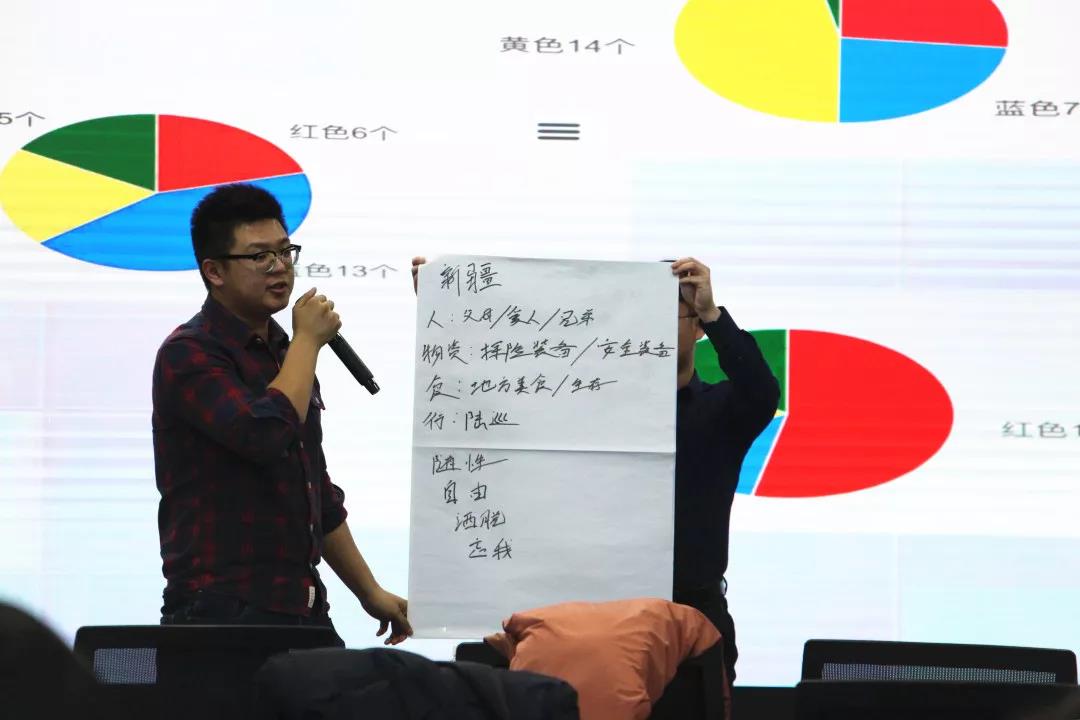 黄色14个
蓝色7
5个
红色6个
色13个
红色1
新疆
人：父母/家人/兄弟
物资：探险装备/安全装备
食：地方美食/生存
行：陆巡
随性
自由
洒脱
忘我